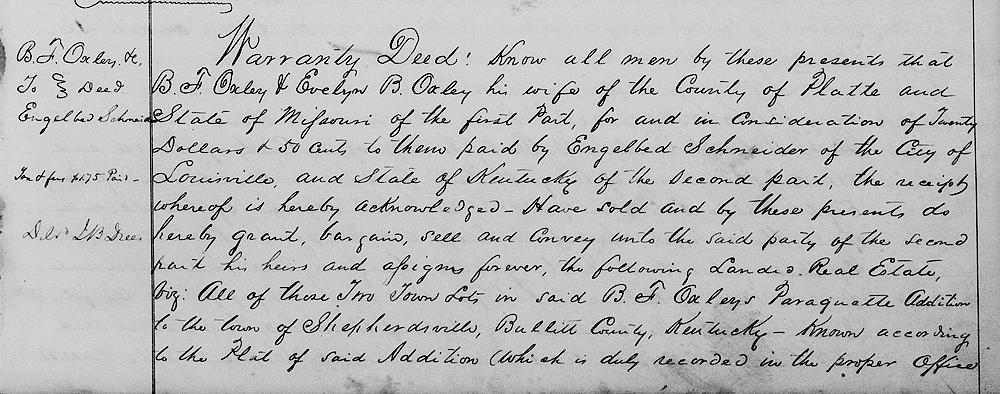 B. F. Oxley, &c,
To } Deed
Engelbed Schneider
Tax & fees $1.75 Paid -
Warranty Deed: Know all men by these presents that
B. F. Oxley & Evelyn B. Oxley his wife of the County of Platte and
State of Missouri of the first Part, for and in Consideration of Twenty
Dollars & 50 cents to them paid by Engelbed Schneider of the City of
Louisville, and State of Kentucky of the Second part, the receipt
whereof is hereby acknowledged - Have sold and by these presents do
hereby grant, bargain, sell and Convey unto the said party of the second
part his heirs and assigns forever, the following Landed Real Estate,
viz: All of those Two Town Lots in said B. F. Oxleys Paraquette Addition
to the town of Shepherdsville, Bullitt County, Kentucky - Known according
to the Plat of said Addition (Which is duly recorded in the proper Office